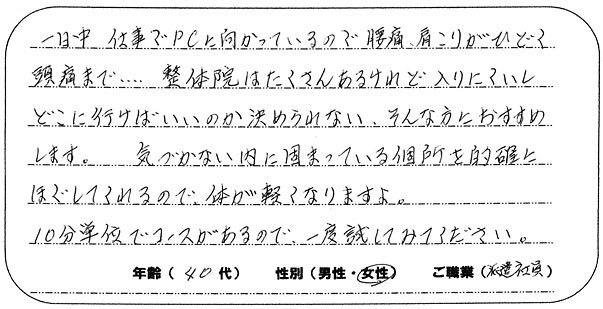 一日中 仕事でPCに向かっているので腰痛、肩こりがひどく
頭痛まで‥‥ 整体院はたくさんあるけれど入りにくいし
どこに行けばいいのか決められない、そんな方におすすめ
します。 気づかない内に固まっている個所を的確に
ほぐしてくれるので、体が軽くなりますよ。
10分単位でコースがあるので、一度試してみてください。
年齢（ 40 代） 性別（男性・女性） ご職業（派遣社員）